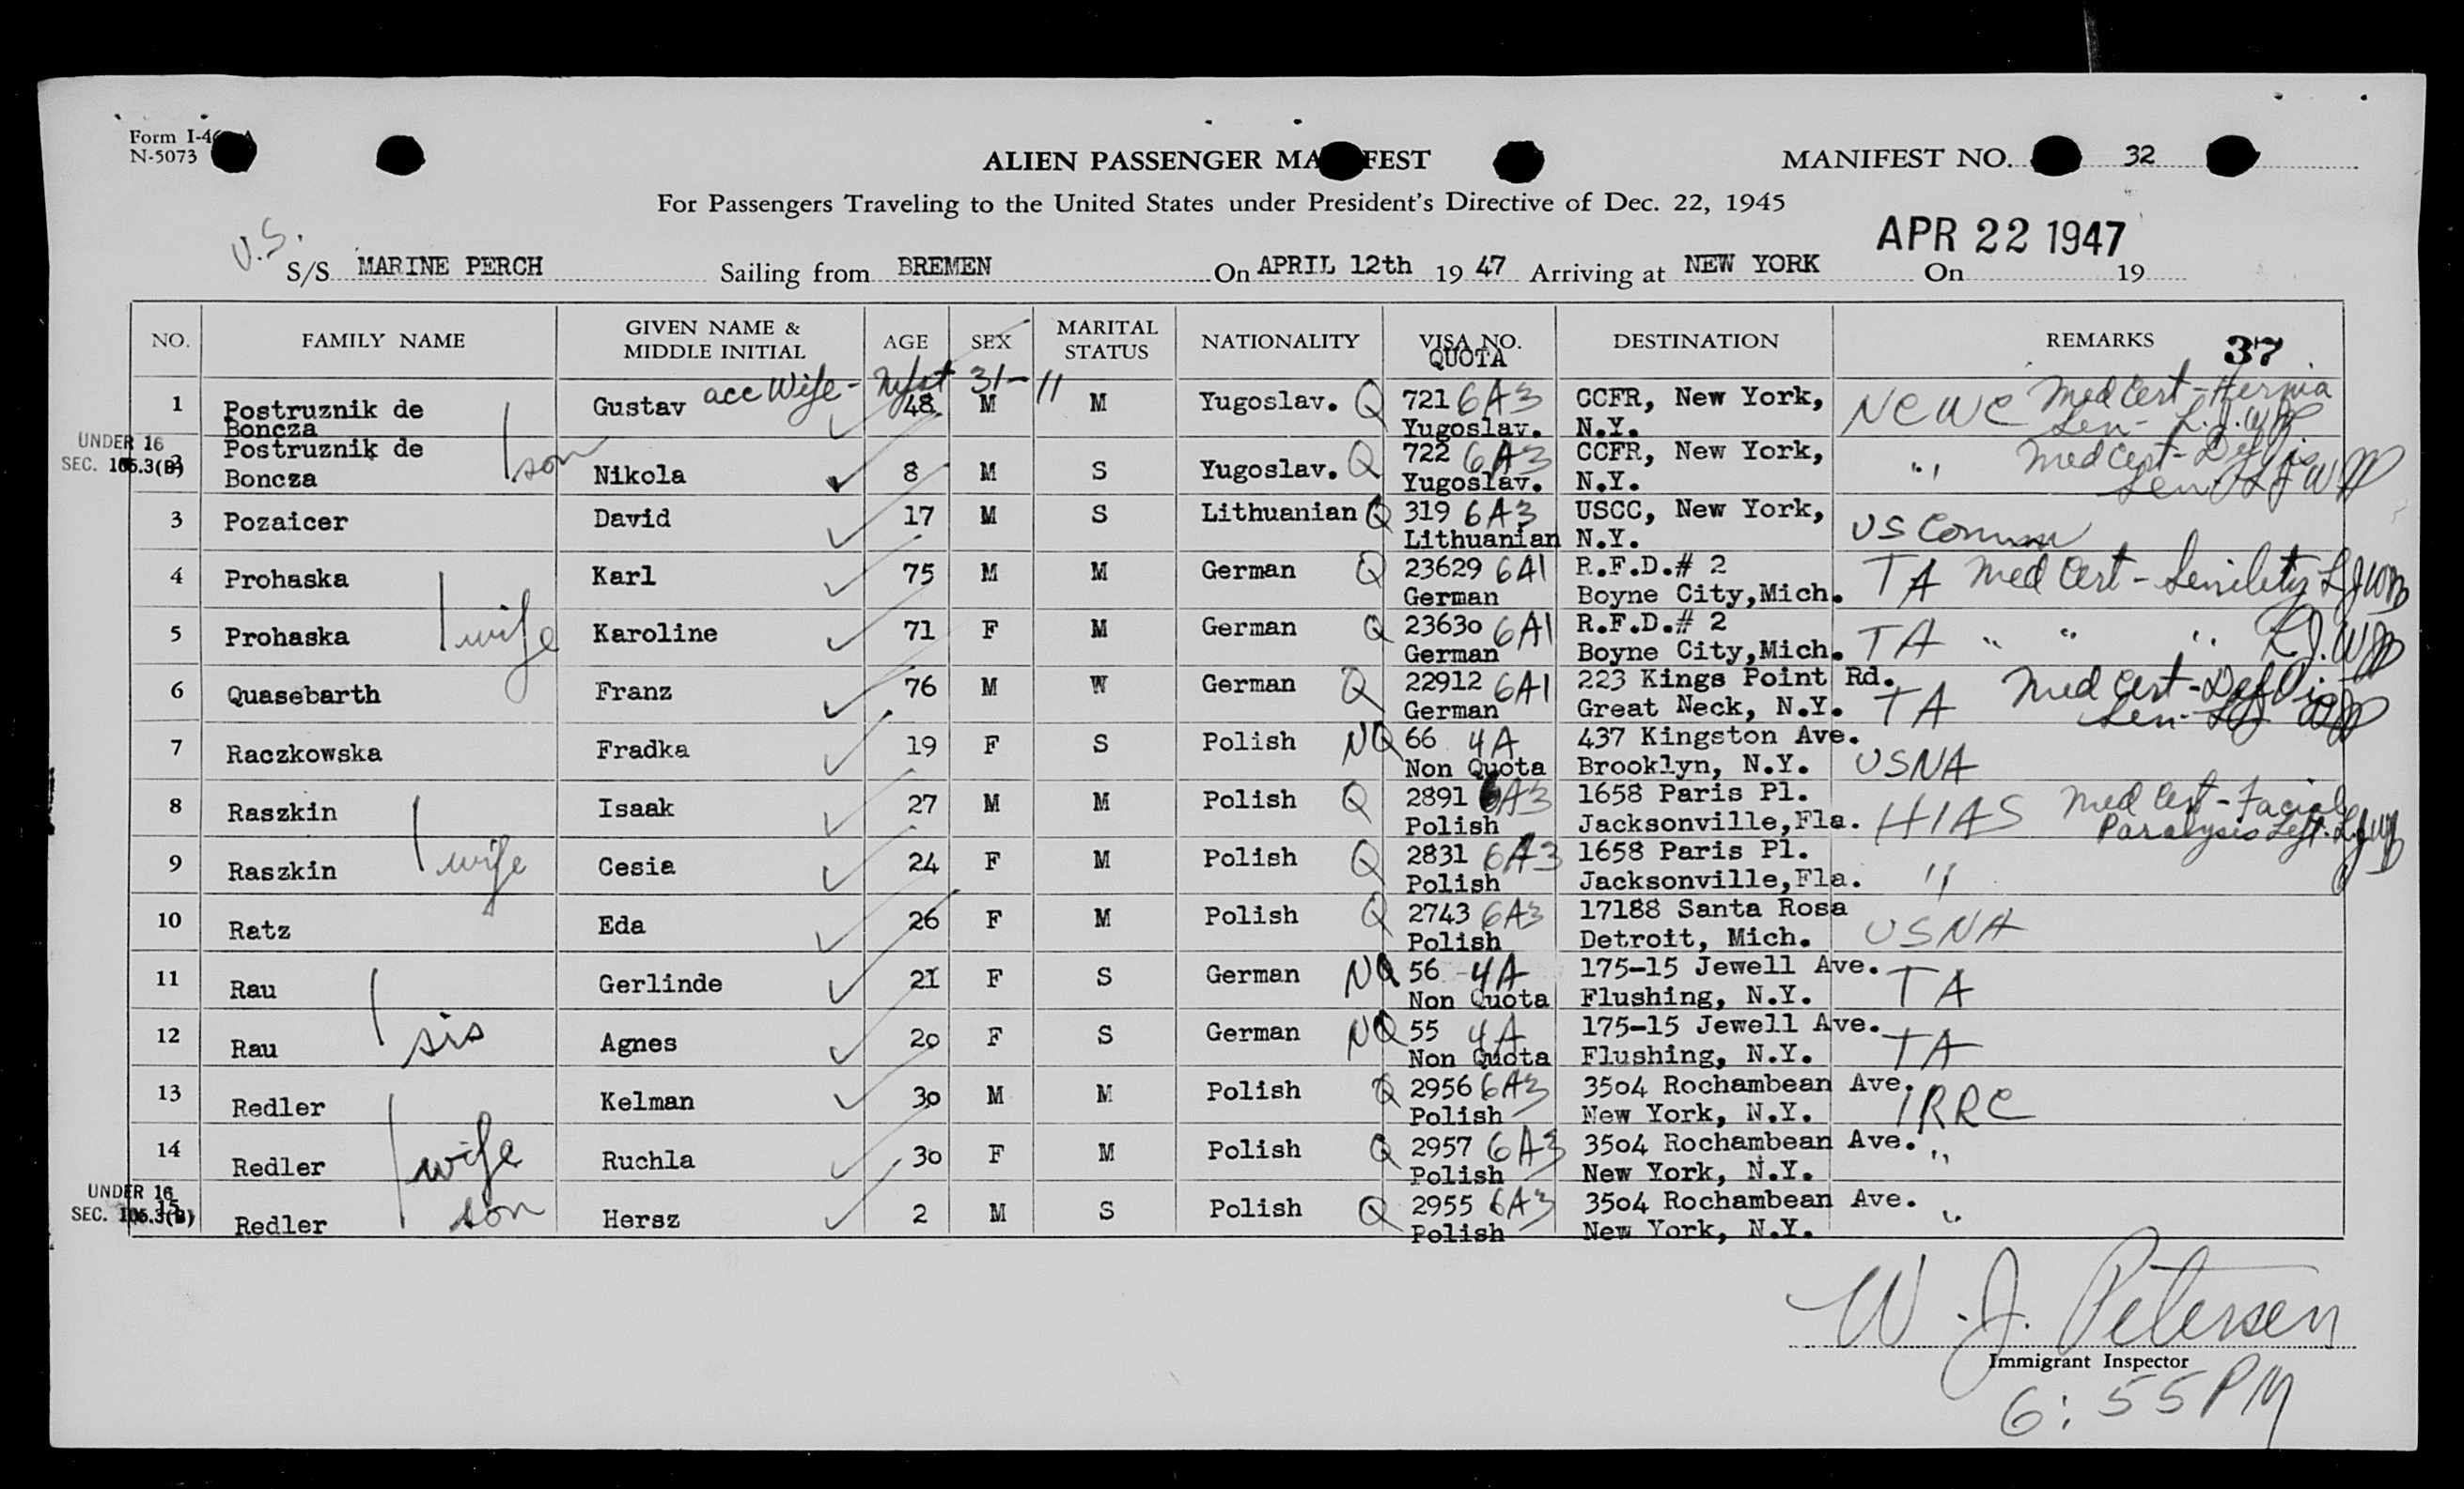 Form I-46
N-5073
ALIEN PASSENGER MA FEST
MANIFEST NO. 32
For Passengers Traveling to the United States under President's Directive of Dec. 22, 1945
APR 22 1947
U.S.
S/S MARINE PERCH Sailing from BREMEN On APRIL 12th 19 47 Arriving at NEW YORK On 19
NO. FAMILY NAME GIVEN NAME & MIDDLE INITIAL AGE SEX MARITAL STATUS NATIONALITY VISA NO. QUOTA DESTINATION REMARKS 37
acc Wife - 31-11
1 Postruznik de Boncza Gustav 48 M M Yugoslav. Q 721 6A3 CCFR, New York, NCWC Med Cert - Hernia
Yugoslav. N.Y. Sen - L.J.W.P
UNDER 16
SEC. 105.3(B) Postruznik de Boncza son Nikola 8 M S Yugoslav. Q 722 6A3 CCFR, New York, " Med Cert - Def Vis
Yugoslav. N.Y.
3 Pozaicer David 17 M S Lithuanian Q 319 6A3 USCC, New York, US Comm
Lithuanian N.Y.
4 Prohaska Karl 75 M M German Q 23629 6A1 R.F.D.# 2 TA Med Cert - Senility
German Boyne City,Mich.
5 Prohaska wife Karoline 71 F M German Q 23630 6A1 R.F.D.# 2 TA " " "
German Boyne City,Mich.
6 Quasebarth Franz 76 M W German Q 22912 6A1 223 Kings Point Rd. TA Med Cert - Def Vis
German Great Neck, N.Y. Sen -
7 Raczkowska Fradka 19 F S Polish NQ 66 4A 437 Kingston Ave. USNA
Non Quota Brooklyn, N.Y.
8 Raszkin Isaak 27 M M Polish Q 2891 6A3 1658 Paris Pl. HIAS Med Cert - Facial
Polish Jacksonville,Fla. Paralysis Left.
9 Raszkin wife Cesia 24 F M Polish Q 2831 6A3 1658 Paris Pl. "
Polish Jacksonville,Fla.
10 Ratz Eda 26 F M Polish Q 2743 6A3 17188 Santa Rosa USNA
Polish Detroit, Mich.
11 Rau Gerlinde 21 F S German NQ 56 4A 175-15 Jewell Ave. TA
Non Quota Flushing, N.Y.
12 Rau sis Agnes 20 F S German NQ 55 4A 175-15 Jewell Ave. TA
Non Quota Flushing, N.Y.
13 Redler Kelman 30 M M Polish Q 2956 6A3 3504 Rochambean Ave. IRRC
Polish New York, N.Y.
14 Redler wife Ruchla 30 F M Polish Q 2957 6A3 3504 Rochambean Ave. "
Polish New York, N.Y.
UNDER 16
SEC. 105.3(B) 15 Redler son Hersz 2 M S Polish Q 2955 6A3 3504 Rochambean Ave. "
Polish New York, N.Y.
W. J. Petersen
Immigrant Inspector
6:55 PM